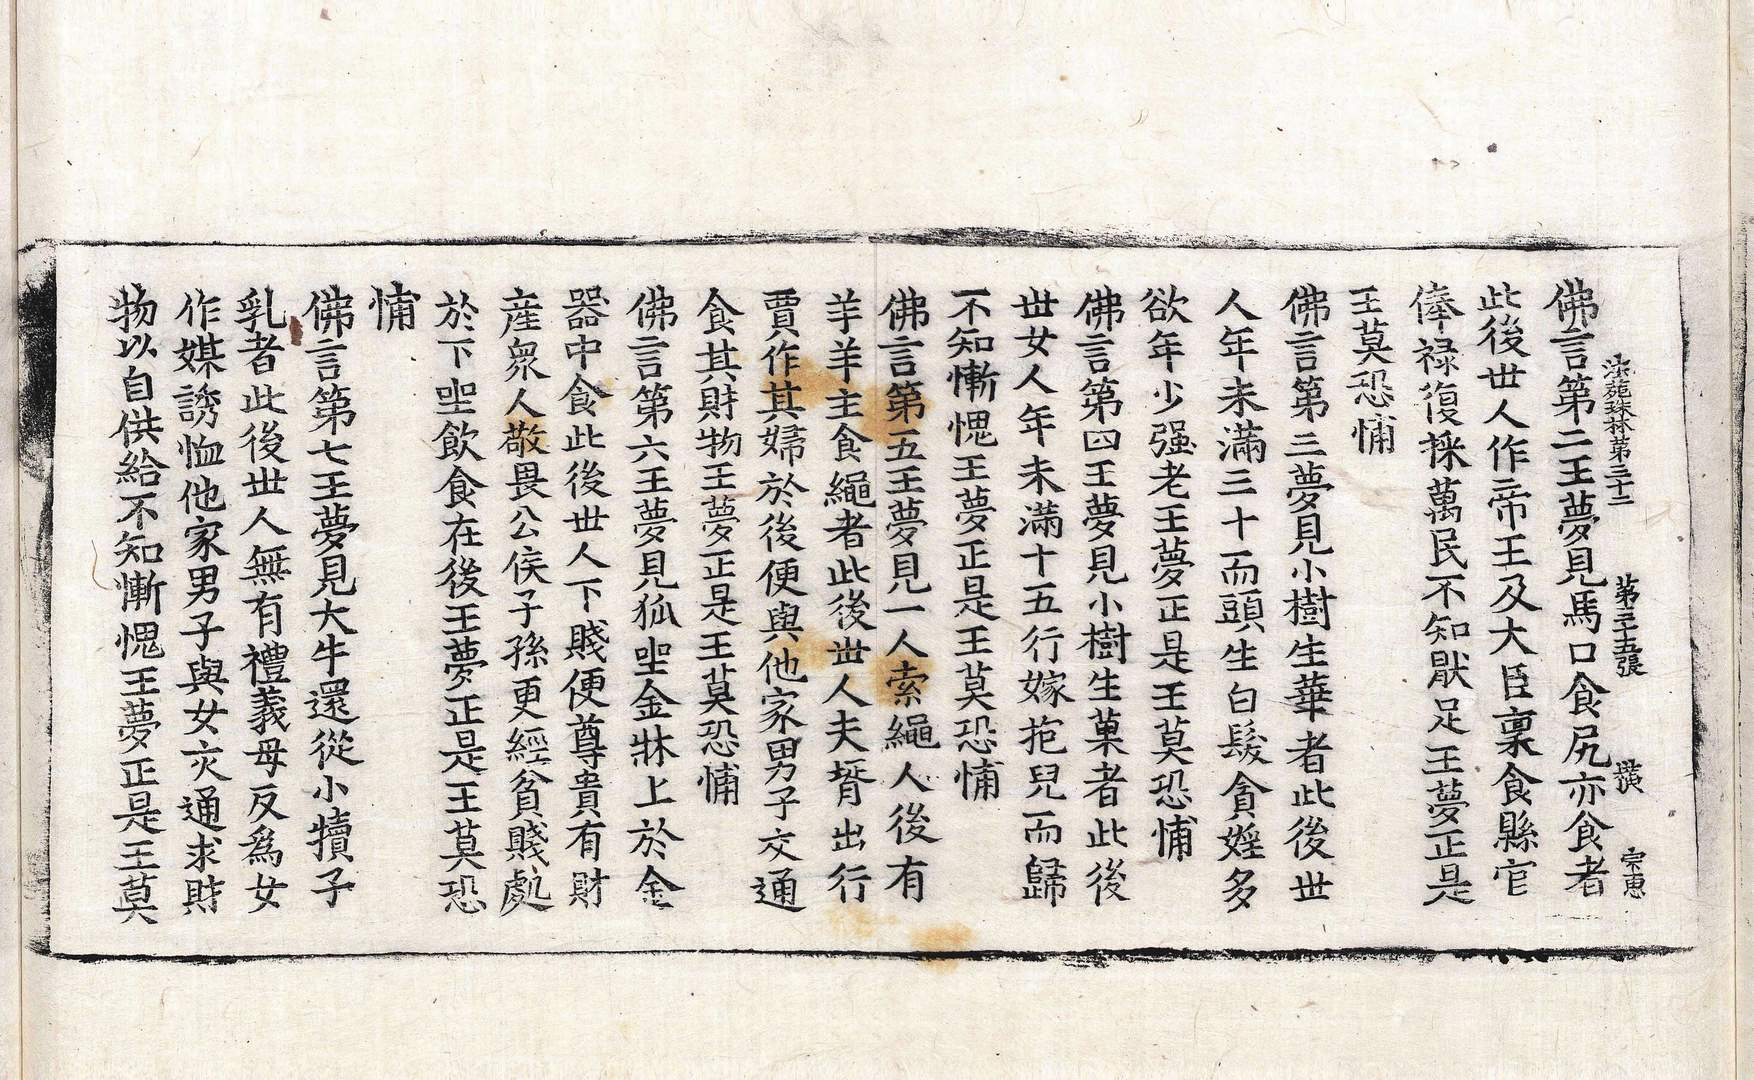 法苑珠林第三十二 第三十五張 横 宗惠
佛言第二王夢見馬口食尻亦食者
此後世人作帝王及大臣稟食縣官
俸祿復採萬民不知猒足王夢正是
王莫恐悑
佛言第三夢見小樹生華者此後世
人年未滿三十而頭生白髮貪婬多
欲年少强老王夢正是王莫恐悑
佛言第四王夢見小樹生菓者此後
世女人年未滿十五行嫁抱兒而歸
不知慚愧王夢正是王莫恐悑
佛言第五王夢見一人索繩人後有
羊羊主食繩者此後世人夫壻出行
賈作其婦於後便與他家男子交通
食其財物王夢正是王莫恐悑
佛言第六王夢見狐坐金牀上於金
器中食此後世人下賤便尊貴有財
産衆人敬畏公侯子孫更經貧賤處
於下坐飲食在後王夢正是王莫恐
悑
佛言第七王夢見大牛還從小犢子
乳者此後世人無有禮義母反爲女
作媒誘恤他家男子與女交通求財
物以自供給不知慚愧王夢正是王莫